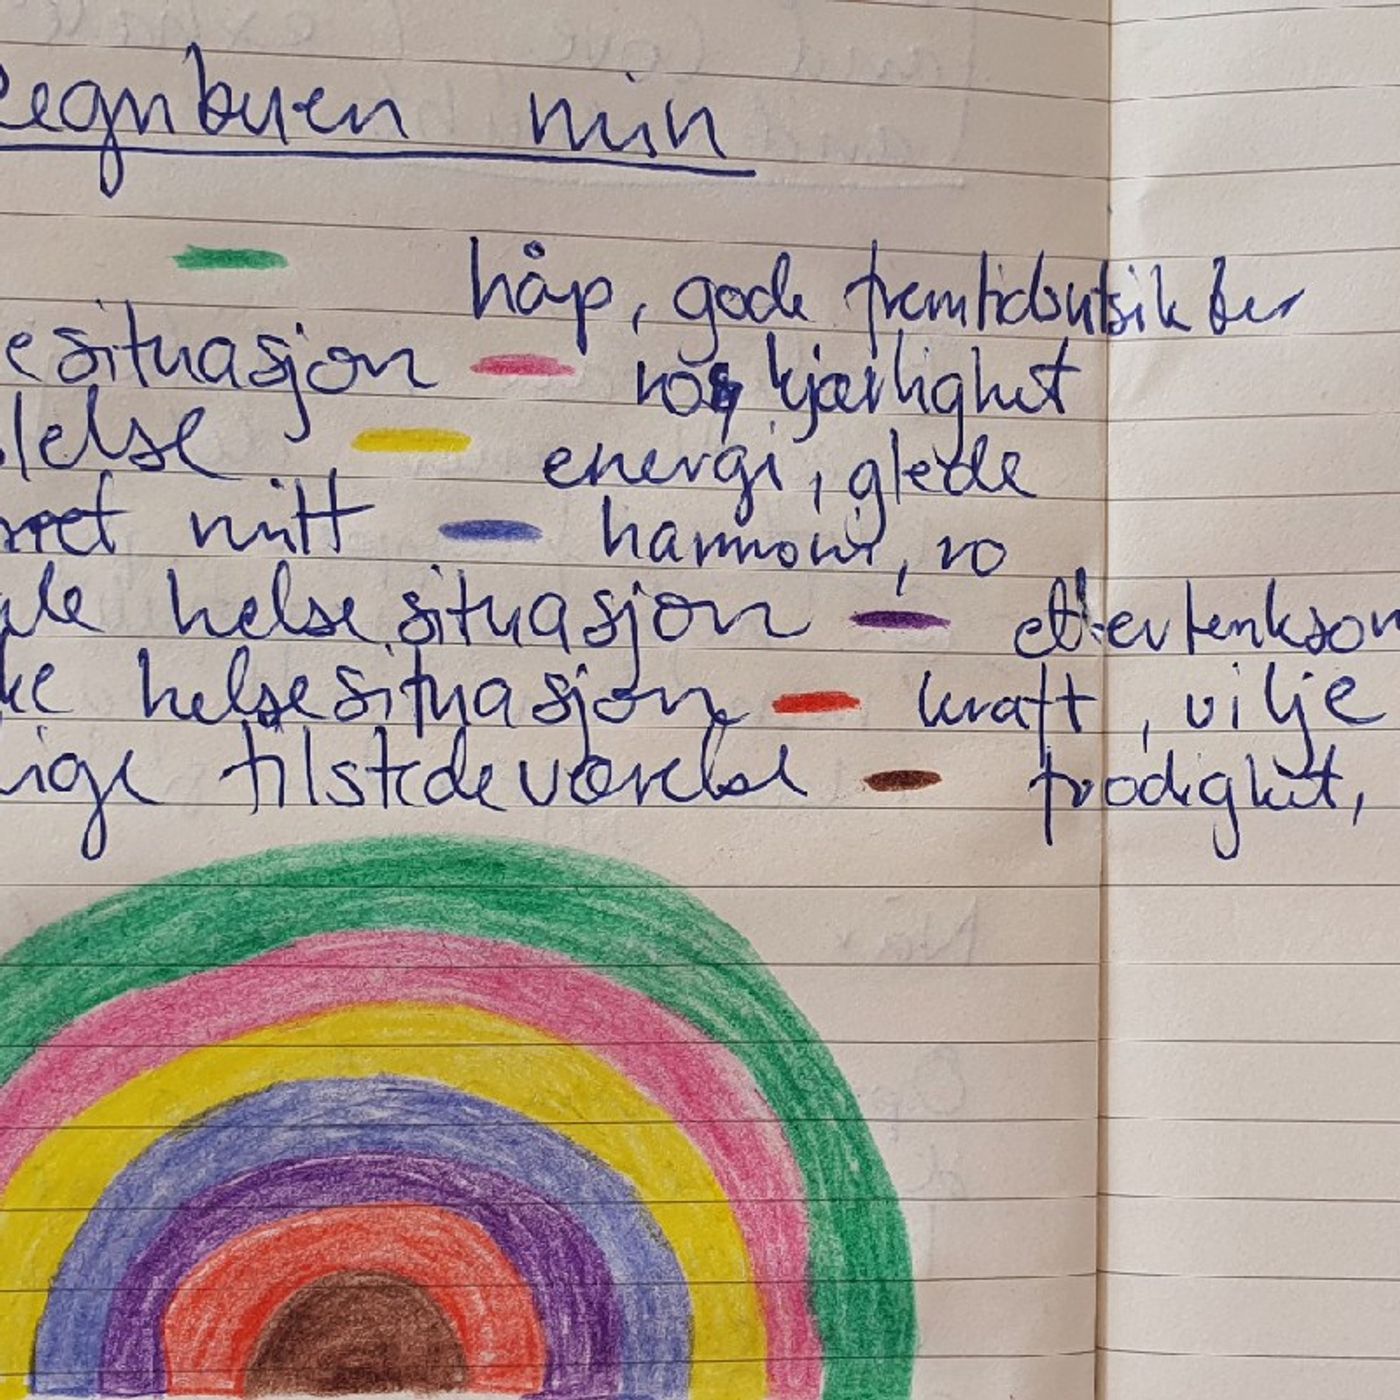 Regnbuen min
håp, gode fremtidsutsikter
esituasjon kjærlighet
lelse energi, glede
mitt harmoni, ro
helsesituasjon ettertenksom
ke helsesituasjon kraft, vilje
ige tilstedeværelse frodighet,